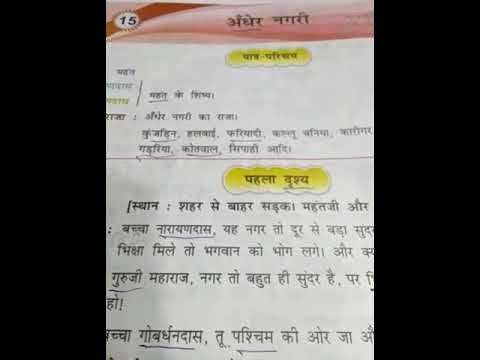 15
अँधेर नगरी
पात्र-परिचय
महंत
महंत के शिष्य।
राजा : अँधेर नगरी का राजा।
कुंजड़िन, हलवाई, फरियादी, कल्लू बनिया, कारीगर
गड़रिया, कोतवाल, सिपाही आदि।
पहला दृश्य
[स्थान : शहर से बाहर सड़क। महंतजी और
: बच्चा नारायणदास, यह नगर तो दूर से बड़ा सुंदर
भिक्षा मिले तो भगवान को भोग लगे। और
गुरुजी महाराज, नगर तो बहुत ही सुंदर है, पर
हो!
गोबर्धनदास, तू पश्चिम की ओर जा